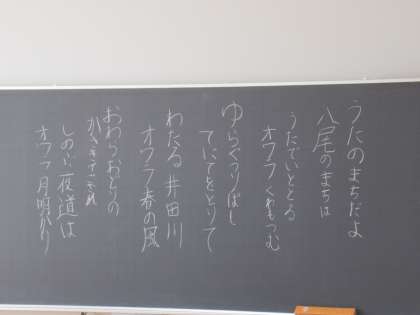 うたのまちだよ
八尾のまちは
うたでいととる
オワラ くわもつむ
ゆらぐつりばし
てにてをとりて
わたる 井田川
オワラ 春の風
おわらおどりの
かさ
しのぶ 夜道は
オワラ 月明かり